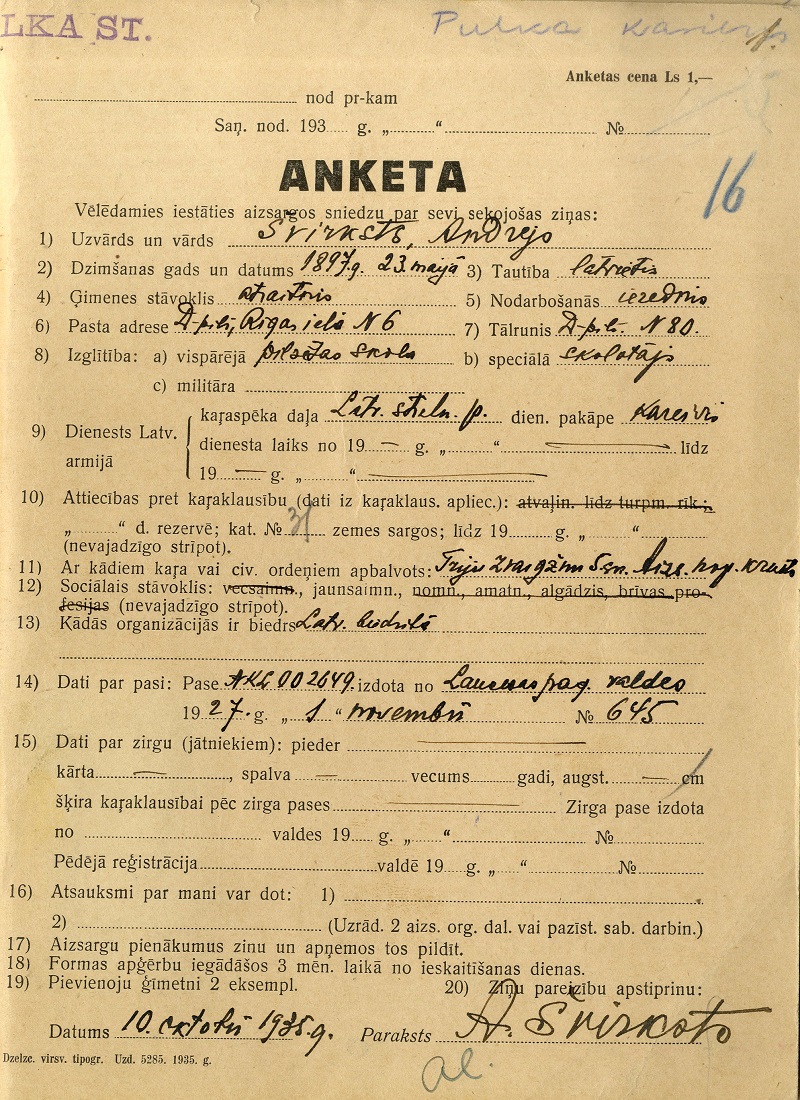 LKA ST.
Pulka
Anketas cena Ls 1,—
nod pr-kam
Saņ. nod. 193 g. „ “ №
ANKETA
16
Vēlēdamies iestāties aizsargos sniedzu par sevi sekojošas ziņas:
1) Uzvārds un vārds Švirksts, Andrejs
2) Dzimšanas gads un datums 1897.g. 23.maijā 3) Tautība latvietis
4) Ģimenes stāvoklis atraitnis 5) Nodarbošanās ierēdnis
6) Pasta adrese D-pilī, Rīgas ielā N 6 7) Tālrunis D-pilī N 80.
8) Izglītība: a) vispārējā pilsētas skola b) speciālā skolotājs
c) militāra
9) Dienests Latv. armijā
kaŗaspēka daļa Latv. strēln. p. dien. pakāpe kareivis
dienesta laiks no 19 — g. „ “ — līdz
19 — g. „ “ —
10) Attiecības pret kaŗaklausību (dati iz kaŗaklaus. apliec.): atvaļin. līdz turpm. rīk.;
„ “ d. rezervē; kat. № 31 zemes sargos; līdz 19 g. „ “
(nevajadzīgo strīpot).
11) Ar kādiem kaŗa vai civ. ordeņiem apbalvots: Triju Zvaigžņu Aizs. nop. krusts
12) Sociālais stāvoklis: vecsaimn., jaunsaimn., nomn., amatn., algādzis, brīvas pro-
fesijas (nevajadzīgo strīpot).
13) Kādās organizācijās ir biedrs Latv. biedrībā
14) Dati par pasi: Pase NKL 002649. izdota no pag. valdes
19 27. g. „ 1 “ novembrī № 645
15) Dati par zirgu (jātniekiem): pieder —
kārta —, spalva — vecums gadi, augst. — cm
šķira kaŗaklausībai pēc zirga pases — Zirga pase izdota
no valdes 19 g. „ “ №
Pēdējā reģistrācija valdē 19 g. „ “ №
16) Atsauksmi par mani var dot: 1)
2) (Uzrād. 2 aizs. org. dal. vai pazīst. sab. darbin.)
17) Aizsargu pienākumus zinu un apņemos tos pildīt.
18) Formas apģērbu iegādāšos 3 mēn. laikā no ieskaitīšanas dienas.
19) Pievienoju ģīmetni 2 eksempl. 20) Ziņu pareizību apstiprinu:
Datums 10. oktobrī 1935.g. Paraksts A. Švirksts
Dzelzc. virsv. tipogr. Uzd. 5285. 1935. g.